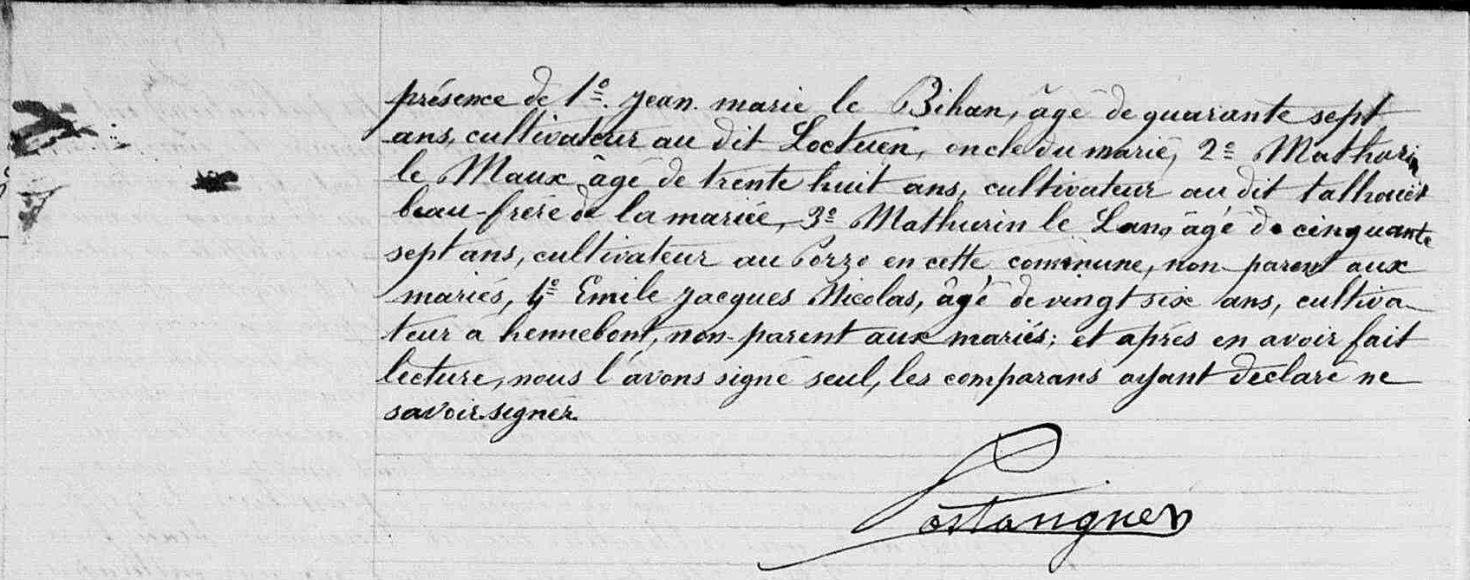 présence de 1º. jean marie le Bihan, âgé de quarante sept
ans, cultivateur au dit Loctuen, oncle du marié, 2º Mathurin
le Maux âgé de trente huit ans, cultivateur au dit talhouët
beau-frère de la mariée, 3º Mathurin le Lan, âgé de cinquante
sept ans, cultivateur au Porzo en cette commune, non parent aux
mariés, 4º Emile jacques Nicolas, âgé de vingt six ans, cultiva-
teur a hennebont, non-parent aux mariés; et aprés en avoir fait
lecture, nous l'avons signé seul, les comparans ayant déclaré ne
savoir signer.